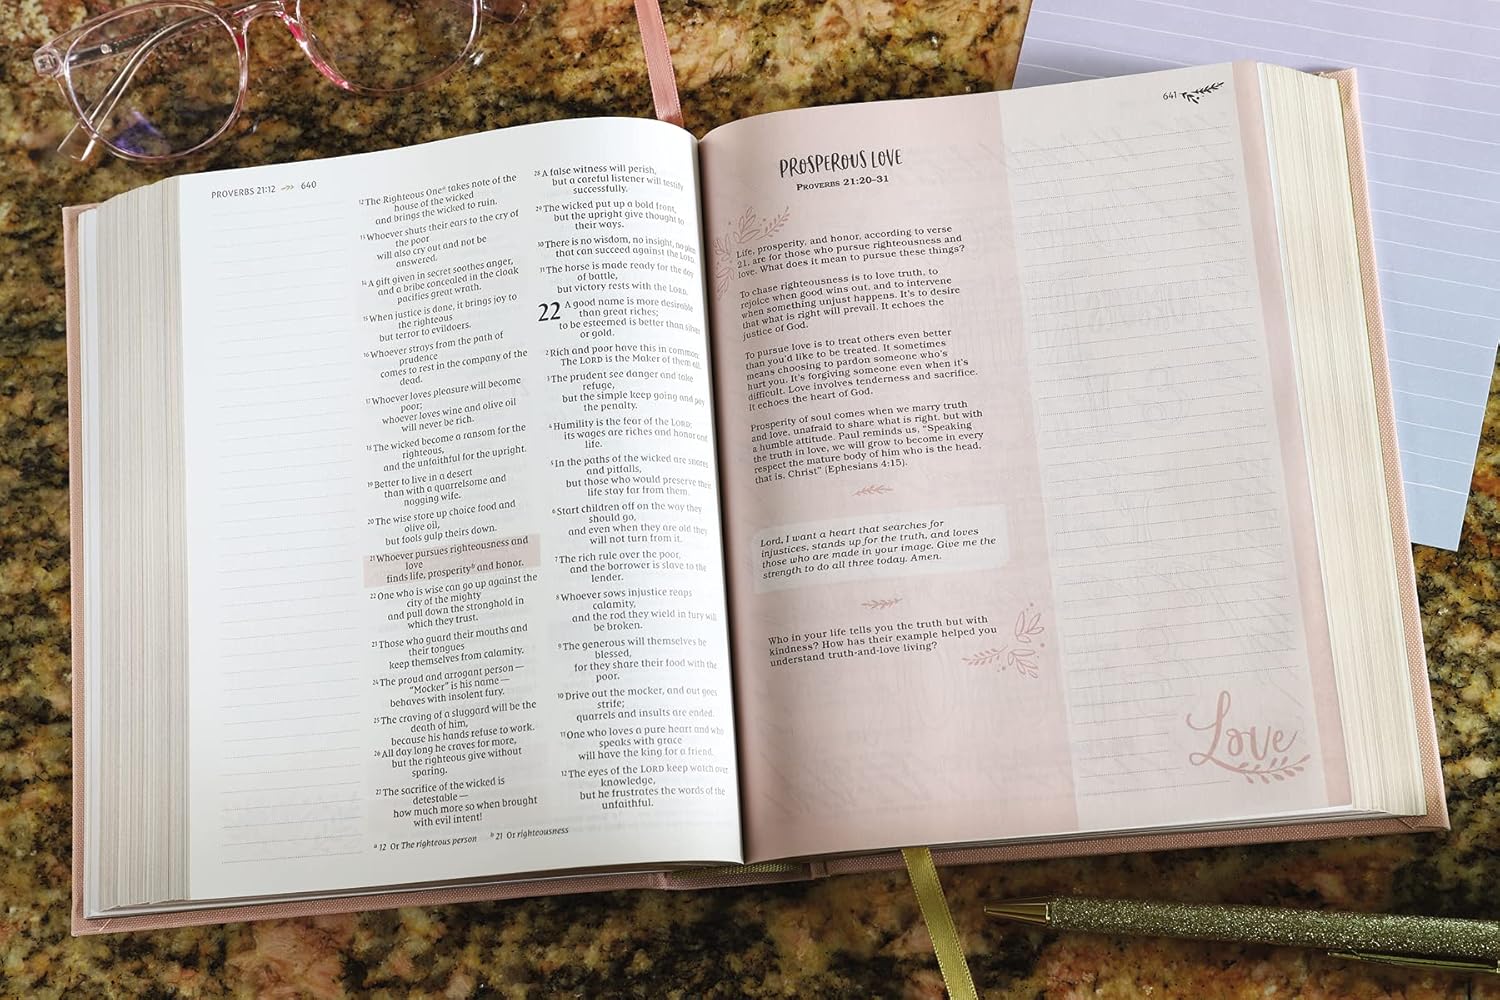 PROVERBS 21:12 640
12 The Righteous One a takes note of the
house of the wicked
and brings the wicked to ruin.
13 Whoever shuts their ears to the cry of
the poor
will also cry out and not be
answered.
14 A gift given in secret soothes anger,
and a bribe concealed in the cloak
pacifies great wrath.
15 When justice is done, it brings joy to
the righteous
but terror to evildoers.
16 Whoever strays from the path of
prudence
comes to rest in the company of the
dead.
17 Whoever loves pleasure will become
poor;
whoever loves wine and olive oil
will never be rich.
18 The wicked become a ransom for the
righteous,
and the unfaithful for the upright.
19 Better to live in a desert
than with a quarrelsome and
nagging wife.
20 The wise store up choice food and
olive oil,
but fools gulp theirs down.
21 Whoever pursues righteousness and
love
finds life, prosperity b and honor.
22 One who is wise can go up against the
city of the mighty
and pull down the stronghold in
which they trust.
23 Those who guard their mouths and
their tongues
keep themselves from calamity.
24 The proud and arrogant person—
"Mocker" is his name—
behaves with insolent fury.
25 The craving of a sluggard will be the
death of him,
because his hands refuse to work.
26 All day long he craves for more,
but the righteous give without
sparing.
27 The sacrifice of the wicked is
detestable—
how much more so when brought
with evil intent!
28 A false witness will perish,
but a careful listener will testify
successfully.
29 The wicked put up a bold front,
but the upright give thought to
their ways.
30 There is no wisdom, no insight, no plan
that can succeed against the LORD.
31 The horse is made ready for the day
of battle,
but victory rests with the LORD.
22 A good name is more desirable
than great riches;
to be esteemed is better than silver
or gold.
2 Rich and poor have this in common:
The LORD is the Maker of them all.
3 The prudent see danger and take
refuge,
but the simple keep going and pay
the penalty.
4 Humility is the fear of the LORD;
its wages are riches and honor and
life.
5 In the paths of the wicked are snares
and pitfalls,
but those who would preserve their
life stay far from them.
6 Start children off on the way they
should go,
and even when they are old they
will not turn from it.
7 The rich rule over the poor,
and the borrower is slave to the
lender.
8 Whoever sows injustice reaps
calamity,
and the rod they wield in fury will
be broken.
9 The generous will themselves be
blessed,
for they share their food with the
poor.
10 Drive out the mocker, and out goes
strife;
quarrels and insults are ended.
11 One who loves a pure heart and who
speaks with grace
will have the king for a friend.
12 The eyes of the LORD keep watch over
knowledge,
but he frustrates the words of the
unfaithful.
a 12 Or The righteous person b 21 Or righteousness
641
PROSPEROUS LOVE
PROVERBS 21:20–31
Life, prosperity, and honor, according to verse
21, are for those who pursue righteousness and
love. What does it mean to pursue these things?
To chase righteousness is to love truth, to
rejoice when good wins out, and to intervene
when something unjust happens. It's to desire
that what is right will prevail. It echoes the
justice of God.
To pursue love is to treat others even better
than you'd like to be treated. It sometimes
means choosing to pardon someone who's
hurt you. It's forgiving someone even when it's
difficult. Love involves tenderness and sacrifice.
It echoes the heart of God.
Prosperity of soul comes when we marry truth
and love, unafraid to share what is right, but with
a humble attitude. Paul reminds us, "Speaking
the truth in love, we will grow to become in every
respect the mature body of him who is the head,
that is, Christ" (Ephesians 4:15).
Lord, I want a heart that searches for
injustices, stands up for the truth, and loves
those who are made in your image. Give me the
strength to do all three today. Amen.
Who in your life tells you the truth but with
kindness? How has their example helped you
understand truth-and-love living?
Love